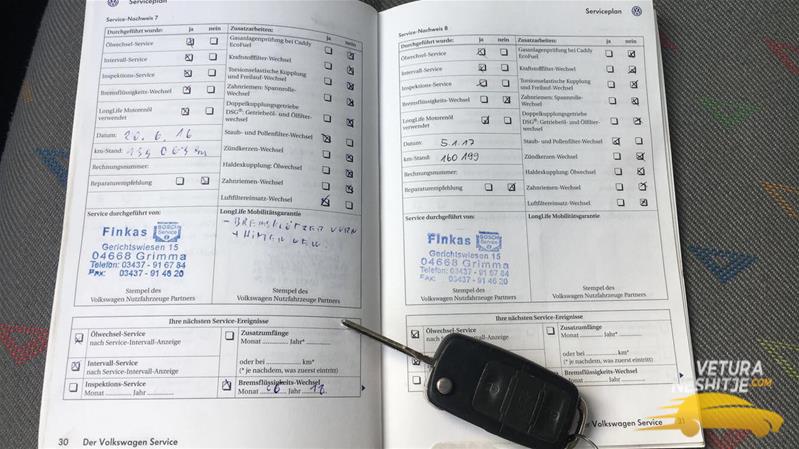 Serviceplan
Service-Nachweis 7
Durchgeführt wurde: ja nein
Ölwechsel-Service
Intervall-Service
Inspektions-Service
Bremsflüssigkeits-Wechsel
LongLife Motorenöl
verwendet
Datum: 20. 6. 16
km-Stand:
Rechnungsnummer:
Reparaturempfehlung
Zusatzarbeiten: ja nein
Gasanlagenprüfung bei Caddy
EcoFuel
Kraftstofffilter-Wechsel
Torsionselastische Kupplung
und Freilauf-Wechsel
Zahnriemen/ Spannrolle-
Wechsel
Doppelkupplungsgetriebe
DSG®: Getriebeöl- und Ölfilter-
wechsel
Staub- und Pollenfilter-Wechsel
Zündkerzen-Wechsel
Haldexkupplung: Ölwechsel
Zahnriemen-Wechsel
Luftfiltereinsatz-Wechsel
Service durchgeführt von:
Finkas BOSCH Service
Gerichtswiesen 15
04668 Grimma
Telefon: 03437 - 91 67 84
Fax: 03437 - 91 46 20
Stempel des
Volkswagen Nutzfahrzeuge Partners
LongLife Mobilitätsgarantie
Stempel des
Volkswagen Nutzfahrzeuge Partners
Ihre nächsten Service-Ereignisse
Ölwechsel-Service
nach Service-Intervall-Anzeige
Intervall-Service
nach Service-Intervall-Anzeige
Inspektions-Service
Monat Jahr
Zusatzumfänge
Monat Jahr*
oder bei km*
(* je nachdem, was zuerst eintritt)
Bremsflüssigkeits-Wechsel
Monat 06 Jahr 18
30 Der Volkswagen Service
Serviceplan
Service-Nachweis 8
Durchgeführt wurde: ja nein
Ölwechsel-Service
Intervall-Service
Inspektions-Service
Bremsflüssigkeits-Wechsel
LongLife Motorenöl
verwendet
Datum: 5.1.17
km-Stand: 160 199
Rechnungsnummer:
Reparaturempfehlung
Zusatzarbeiten: ja nein
Gasanlagenprüfung bei Caddy
EcoFuel
Kraftstofffilter-Wechsel
Torsionselastische Kupplung
und Freilauf-Wechsel
Zahnriemen/ Spannrolle-
Wechsel
Doppelkupplungsgetriebe
DSG®: Getriebeöl- und Ölfilter-
wechsel
Staub- und Pollenfilter-Wechsel
Zündkerzen-Wechsel
Haldexkupplung: Ölwechsel
Zahnriemen-Wechsel
Luftfiltereinsatz-Wechsel
Service durchgeführt von:
Finkas BOSCH Service
Gerichtswiesen 15
04668 Grimma
Telefon: 03437 - 91 67 84
Fax: 03437 - 91 46 20
Stempel des
Volkswagen Nutzfahrzeuge Partners
LongLife Mobilitätsgarantie
Stempel des
Volkswagen Nutzfahrzeuge Partners
Ihre nächsten Service-Ereignisse
Ölwechsel-Service
nach Service-Intervall-Anzeige
Zusatzumfänge
Monat Jahr*
km*
(* je nachdem, was zuerst eintritt)
Monat Jahr
Der Volkswagen Service 31
VETURA
NESHITJE.COM